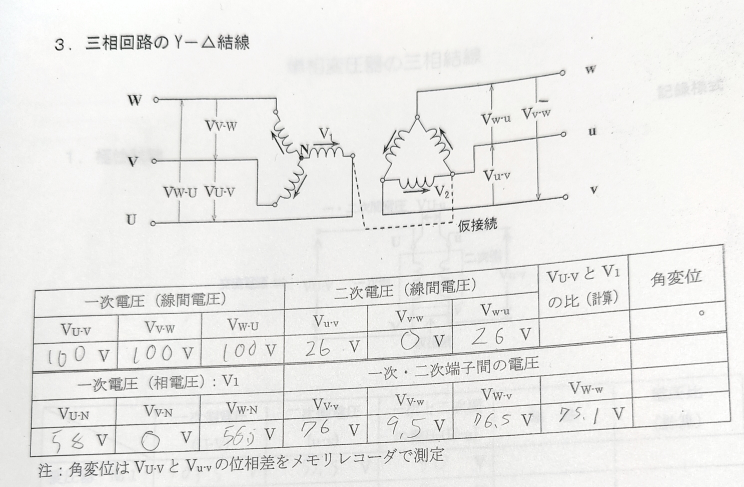 3．三相回路のY－△結線
W
w
VV-W
N
V1
Vw-u
Vv-w
V
u
VW-U
VU-V
Vu-v
V2
U
v
仮接続
一次電圧（線間電圧）
二次電圧（線間電圧）
VU-VとV1の比（計算）
角変位
VU-V
VV-W
VW-U
Vu-v
Vv-w
Vw-u
100 V
100 V
100 V
26 V
0 V
26 V
°
一次電圧（相電圧）：V1
一次・二次端子間の電圧
VU-N
VV-N
VW-N
VV-v
VV-w
VW-v
VW-w
58 V
0 V
V
76 V
9,5 V
76,5 V
75.1 V
注：角変位はVU-VとVu-vの位相差をメモリレコーダで測定